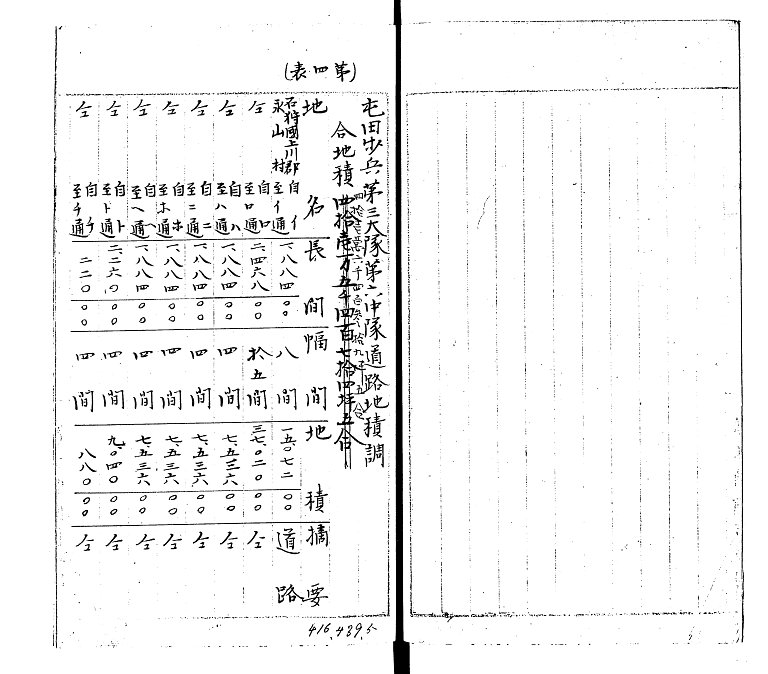 (第四表)
屯田歩兵第三大隊第六中隊道路地積調
四拾壱萬六千四百参拾九坪五合
合地積 四拾壱万五千四百七拾四坪五合
地名 長間 幅間 地積 摘要
石狩國上川郡永山村 自イ至イ通 一、八八四 〇〇 八間 一五、〇七二 〇〇 道路
仝 自ロ至ロ通 二、四六八 〇〇 拾五間 三七、〇二〇 〇〇 仝
仝 自ハ至ハ通 一、八八四 〇〇 四間 七、五三六 〇〇 仝
仝 自ニ至ニ通 一、八八四 〇〇 四間 七、五三六 〇〇 仝
仝 自ホ至ホ通 一、八八四 〇〇 四間 七、五三六 〇〇 仝
仝 自ヘ至ヘ通 一、八八四 〇〇 四間 七、五三六 〇〇 仝
仝 自ト至ト通 二、二六〇 〇〇 四間 九、〇四〇 〇〇 仝
仝 自チ至チ通 二二〇 〇〇 四間 八八〇 〇〇 仝
416,439.5